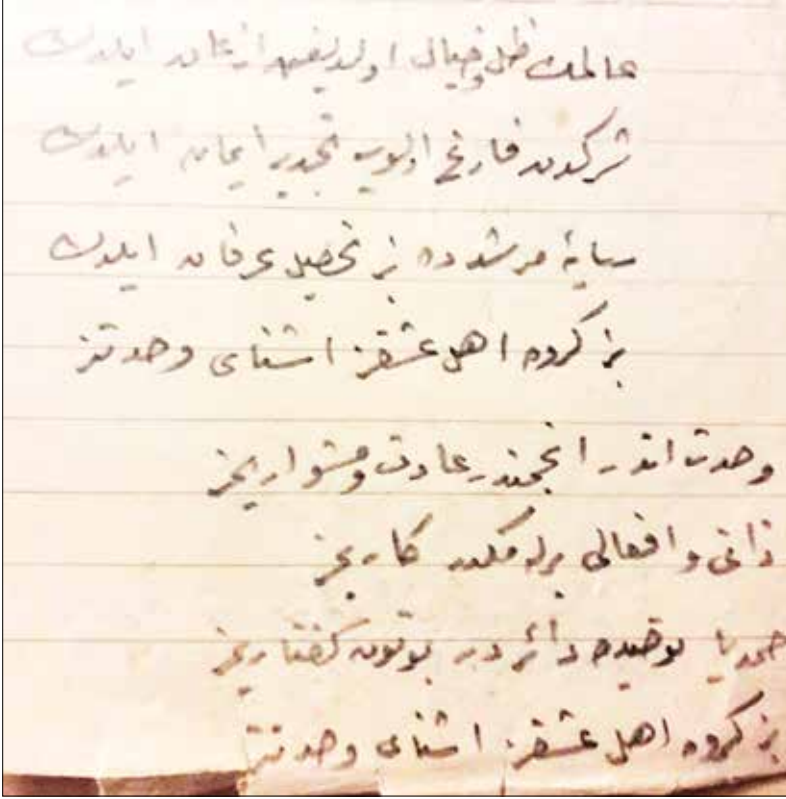 عالمك ظل و خيال اولديغنه اذعان ايلدك
شركدن فارغ اولوب تجديد ايمان ايلدك
سايۀ مرشدده بز تحصيل عرفان ايلدك
بز كروه اهل عشقز اشناى وحدتز
وحدت اندر انجمندر عادت
ذاتى و افعالى برله مكدر كاريمز
صمديا توحيده دائردر بوتون كفتاريمز
بز كروه اهل عشقز اشناى وحدتز